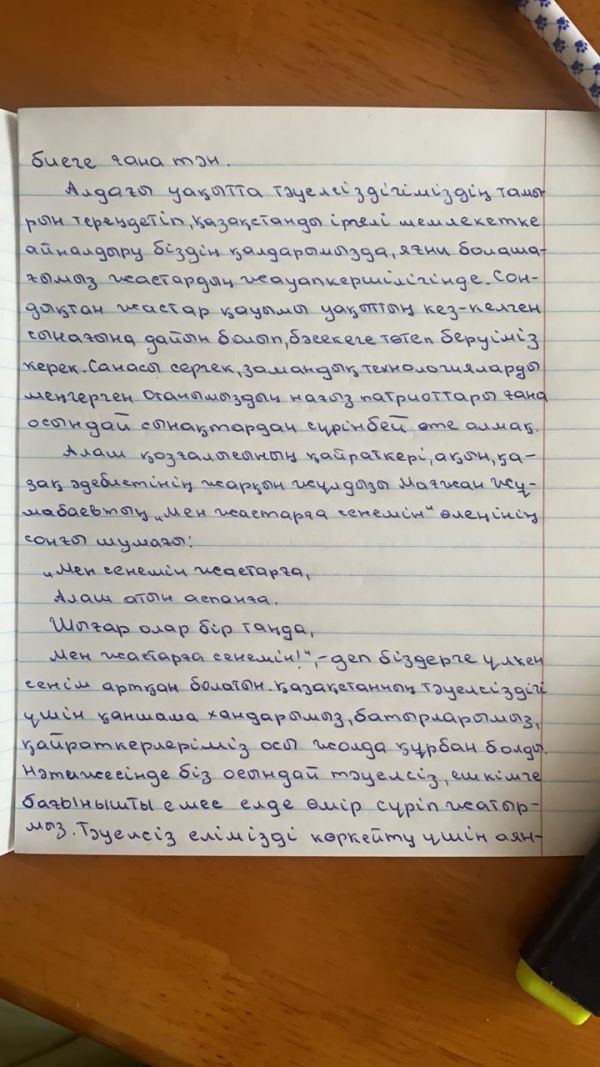 биеге ғана тән.
Алдағы уақытта тәуелсіздігіміздің тамы-
рын тереңдетіп, Қазақстанды іргелі мемлекетке
айналдыру біздің қалдарымызда, яғни болаша-
ғымыз жастардың жауапкершілігінде. Сон-
дықтан жастар қауымы уақыттың кез-келген
сынағына дайын болып, бәсекеге төтеп беруіміз
керек. Санасы сергек, замандық технологияларды
меңгерген Отанымыздың нағыз патриоттары ғана
осындай сынақтардан сүрінбей өте алмақ.
Алаш қозғалысының қайраткері, ақын, қа-
зақ әдебиетінің жарқын жұлдызы Мағжан Жұ-
мабаевтың „Мен жастарға сенемін" өлеңінің
соңғы шумағы:
„Мен сенемін жастарға,
Алаш атын аспанға.
Шығар олар бір таңда,
Мен жастарға сенемін!", - деп біздерге үлкен
сенім артқан болатын. Қазақстанның тәуелсіздігі
үшін қаншама хандарымыз, батырларымыз,
қайраткерлеріміз осы жолда құрбан болды.
Нәтижесінде біз осындай тәуелсіз, ешкімге
бағынышты емес елде өмір сүріп жатыр-
мыз. Тәуелсіз елімізді көркейту үшін аян-